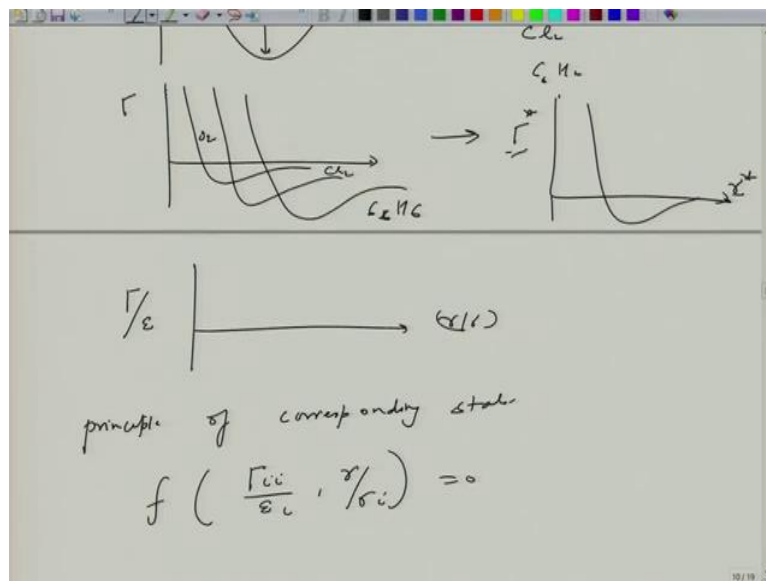 Cl₂
C₆ H₆
Γ
O₂
Cl₂
C₆H6
Γ*
r*
Γ/ε
(r/σ)
principle of corresponding state
f ( Γii/εi , r/σi ) = 0
10/19